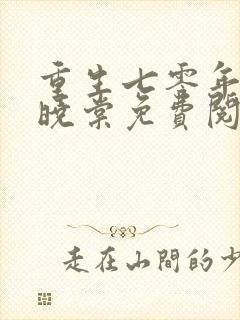 重生七零年
晓棠免费阅
走在山間的少